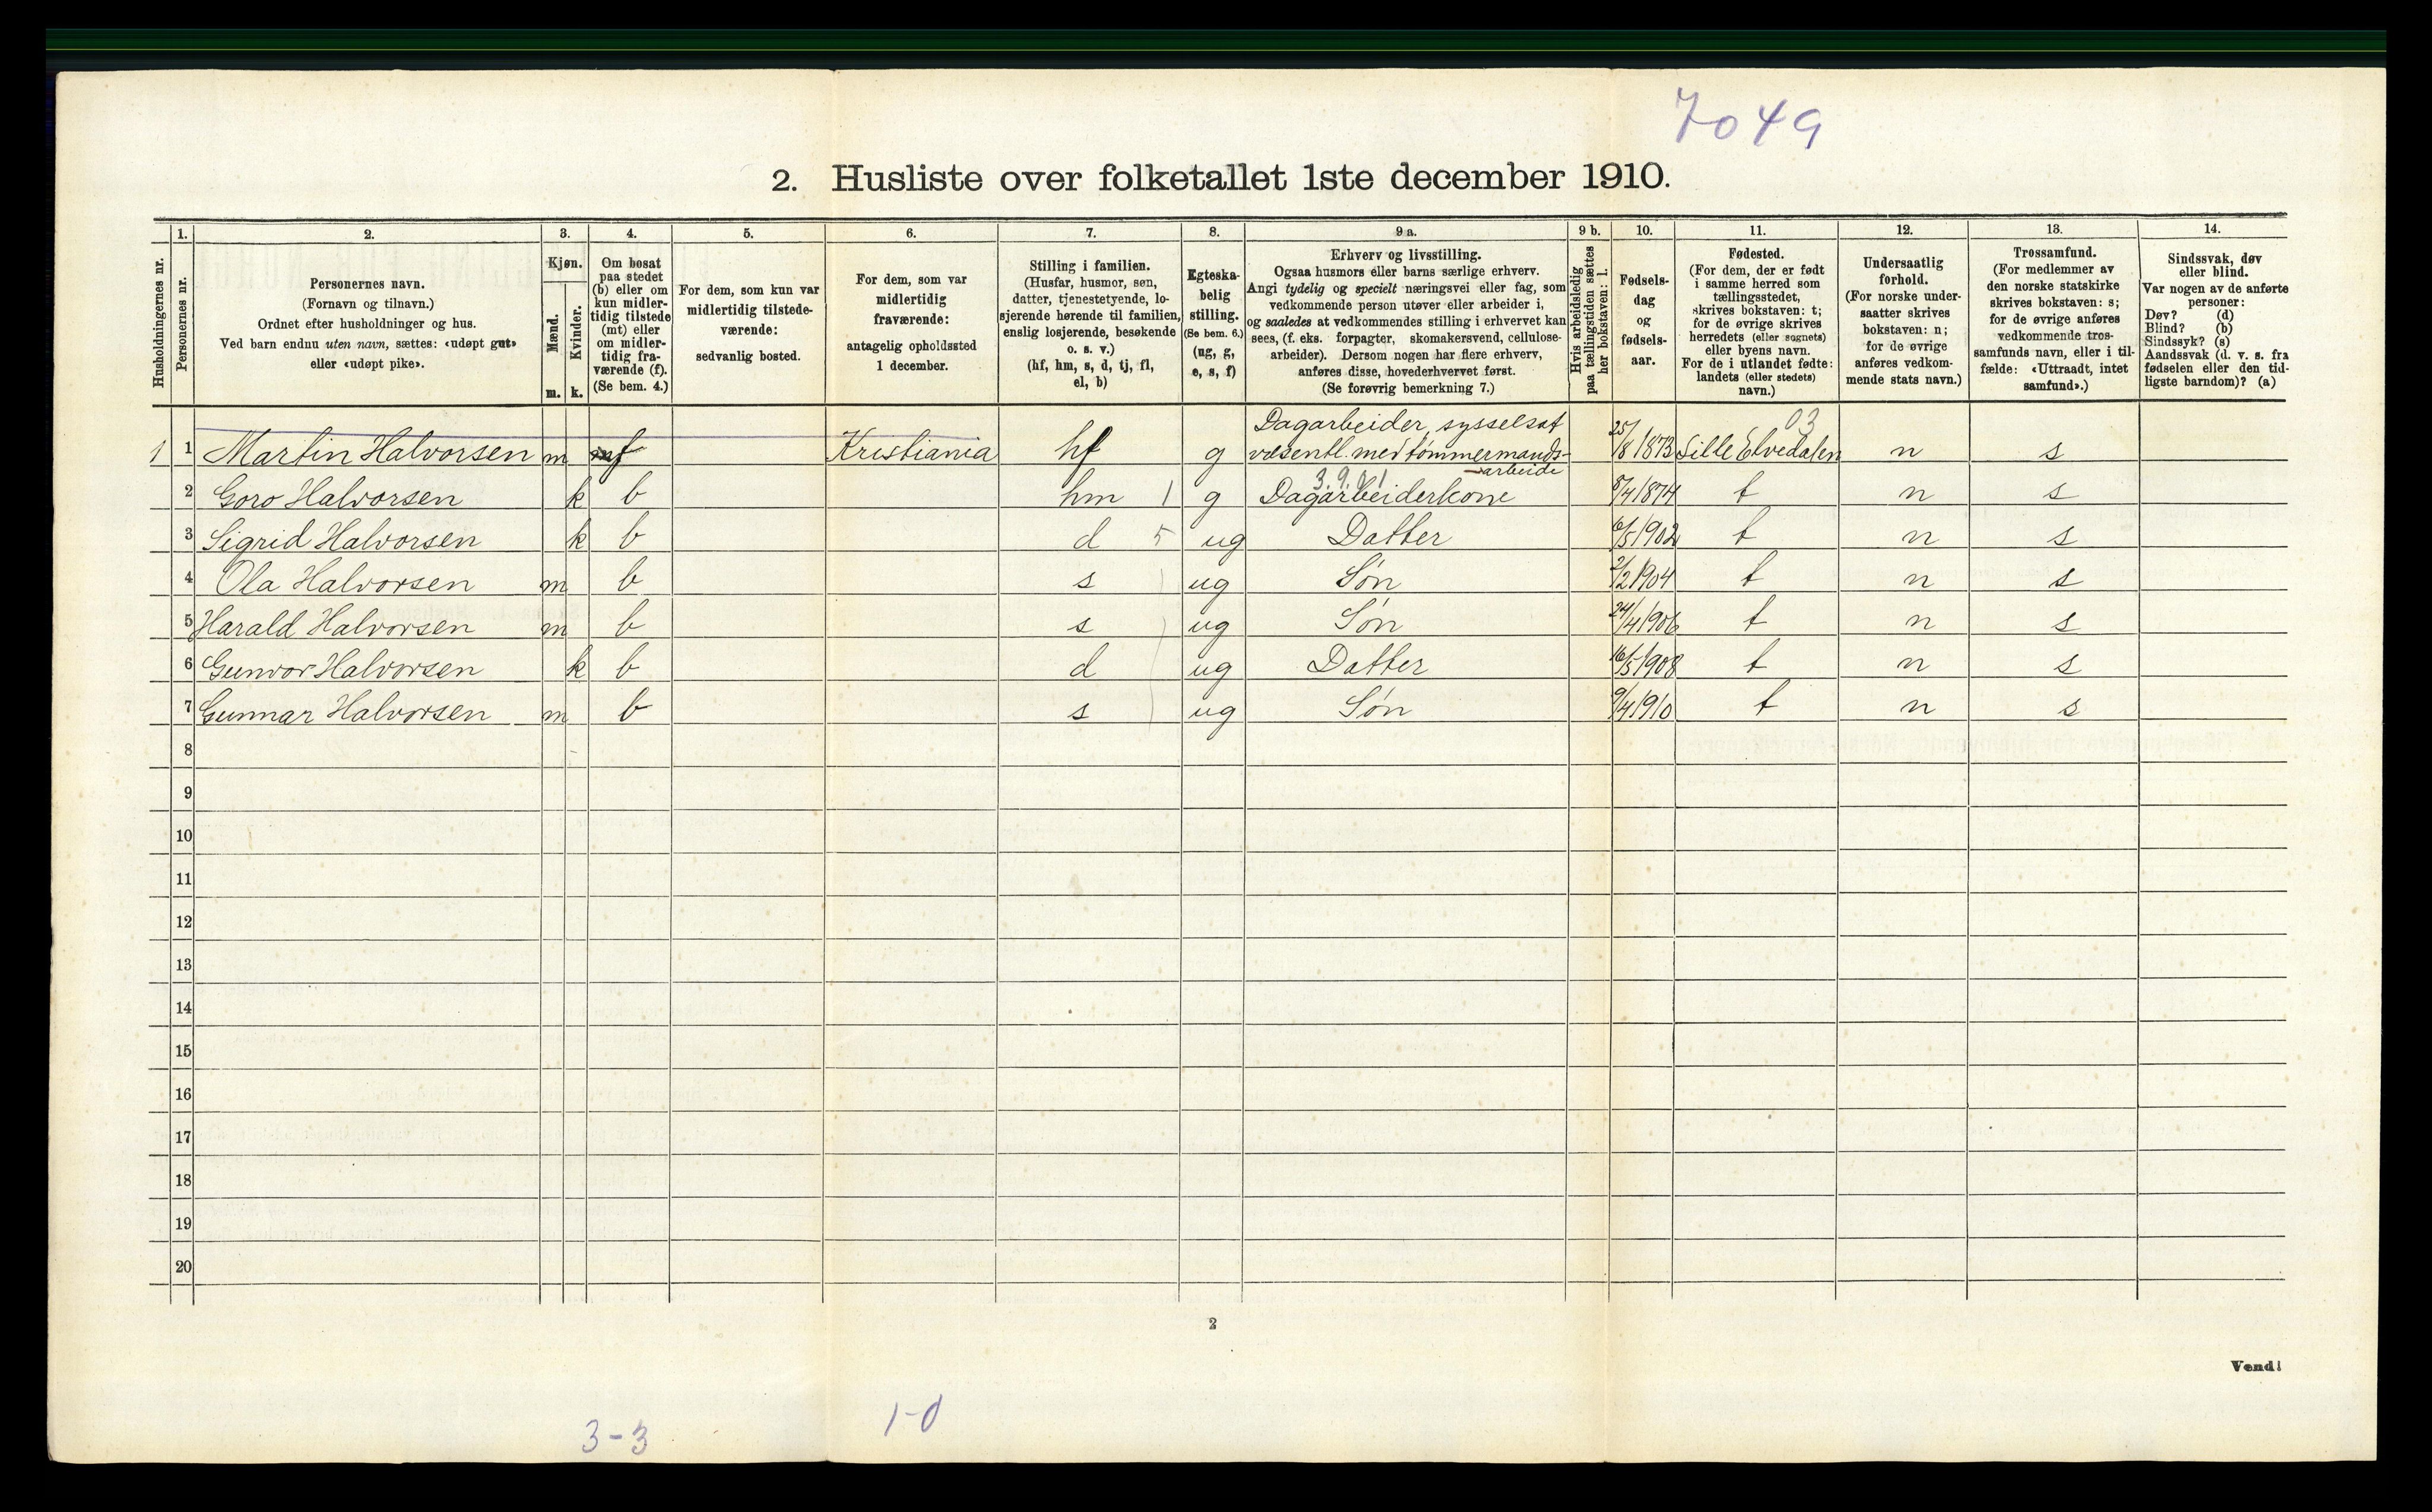 7049
2. Husliste over folketallet 1ste december 1910.
Husholdningernes nr.
1.
Personernes nr.
2.
Personernes navn.
(Fornavn og tilnavn.)
Ordnet efter husholdninger og hus.
Ved barn endnu uten navn, sættes: «udøpt gut»
eller «udøpt pike».
3.
Kjøn.
Mænd.
m.
Kvinder.
k.
4.
Om bosat
paa stedet
(b) eller om
kun midler-
tidig tilstede
(mt) eller
om midler-
tidig fra-
værende (f).
(Se bem. 4.)
5.
For dem, som kun var
midlertidig tilstede-
værende:
sedvanlig bosted.
6.
For dem, som var
midlertidig
fraværende:
antagelig opholdssted
1 december.
7.
Stilling i familien.
(Husfar, husmor, søn,
datter, tjenestetyende, lo-
sjerende hørende til familien,
enslig losjerende, besøkende
o. s. v.)
(hf, hm, s, d, tj, fl,
el, b)
8.
Egteska-
belig
stilling.
(Se bem. 6.)
(ug, g,
e, s, f)
9 a.
Erhverv og livsstilling.
Ogsaa husmors eller barns særlige erhverv.
Angi tydelig og specielt næringsvei eller fag, som
vedkommende person utøver eller arbeider i,
og saaledes at vedkommendes stilling i erhvervet kan
sees, (f. eks. forpagter, skomakersvend, cellulose-
arbeider). Dersom nogen har flere erhverv,
anføres disse, hovederhvervet først.
(Se forøvrig bemerkning 7.)
9 b.
Hvis arbeidsledig
paa tællingstiden sættes
her bokstaven: l.
10.
Fødsels-
dag
og
fødsels-
aar.
11.
Fødested.
(For dem, der er født
i samme herred som
tællingsstedet,
skrives bokstaven: t;
for de øvrige skrives
herredets (eller sognets)
eller byens navn.
For de i utlandet fødte:
landets (eller stedets)
navn.)
12.
Undersaatlig
forhold.
(For norske under-
saatter skrives
bokstaven: n;
for de øvrige
anføres vedkom-
mende stats navn.)
13.
Trossamfund.
(For medlemmer av
den norske statskirke
skrives bokstaven: s;
for de øvrige anføres
vedkommende tros-
samfunds navn, eller i til-
fælde: «Uttraadt, intet
samfund».)
14.
Sindssvak, døv
eller blind.
Var nogen av de anførte
personer:
Døv? (d)
Blind? (b)
Sindssyk? (s)
Aandssvak (d. v. s. fra
fødselen eller den tid-
ligste barndom)? (a)
Dagarbeider, sysselsat 03
1 1 Martin Halvorsen m f Kristiania hf g væsentl. med tømmermands- 25/8 1873 Lille Elvedalen n s
-arbeide
3.9.01
2 Goro Halvorsen k b hm 1 g Dagarbeiderkone 8/4 1874 t n s
3 Sigrid Halvorsen k b d 5 ug Datter 6/5 1902 t n s
4 Ola Halvorsen m b s ug Søn 2/2 1904 t n s
5 Harald Halvorsen m b s ug Søn 24/4 1906 t n s
6 Gunvor Halvorsen k b d ug Datter 16/5 1908 t n s
7 Gunnar Halvorsen m b s ug Søn 9/4 1910 t n s
8
9
10
11
12
13
14
15
16
17
18
19
20
2
Vend!
3-3
1-0